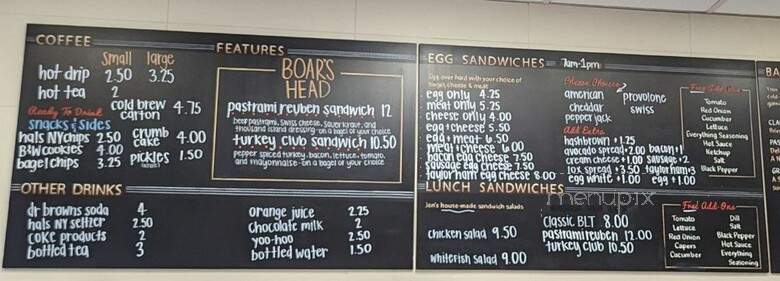 COFFEE
small large
hot drip 2.50 3.25
hot tea 2
Ready To Drink
cold brew carton 4.75
snacks & sides
hals NY chips 2.50
B&W cookies 4.00
bagel chips 3.25
crumb cake 4.00
pickles 1.50
FEATURES
BOAR'S HEAD
pastrami reuben sandwich 12
beef pastrami, swiss cheese, sauerkraut, and
thousand island dressing - on a bagel of your choice
turkey club sandwich 10.50
pepper spiced turkey, bacon, lettuce, tomato,
and mayonnaise - on a bagel of your choice
OTHER DRINKS
dr browns soda 4
hals NY seltzer 2.50
coke products 2
bottled tea 3
orange juice 2.25
chocolate milk 2
yoo-hoo 2.50
bottled water 1.50
EGG SANDWICHES 7am-1pm
Egg over hard with your choice of
bagel, cheese & meat
egg only 4.25
meat only 5.25
cheese only 4.00
egg + cheese 5.50
egg + meat 6.50
meat + cheese 6.00
bacon egg cheese 7.50
sausage egg cheese 7.50
taylor ham egg cheese 8.00
Cheese Choices
american
cheddar
pepper jack
provolone
swiss
Add Extra
hashbrown +1.25
avocado spread +2.00 bacon +1
cream cheese +1.00 sausage +2
lox spread +3.50 taylor ham +3
egg white +1.00 egg +1.00
Tomato
Red Onion
Cucumber
Lettuce
Everything Seasoning
Hot Sauce
Ketchup
Salt
Black Pepper
LUNCH SANDWICHES
Jen's house-made sandwich salads
chicken salad 9.50
whitefish salad 9.00
classic BLT 8.00
pastrami reuben 12.00
turkey club 10.50
Free Add-Ons
Tomato Dill
Lettuce Salt
Red Onion Black Pepper
Capers Hot Sauce
Cucumber Everything
Seasoning
menupix
BA